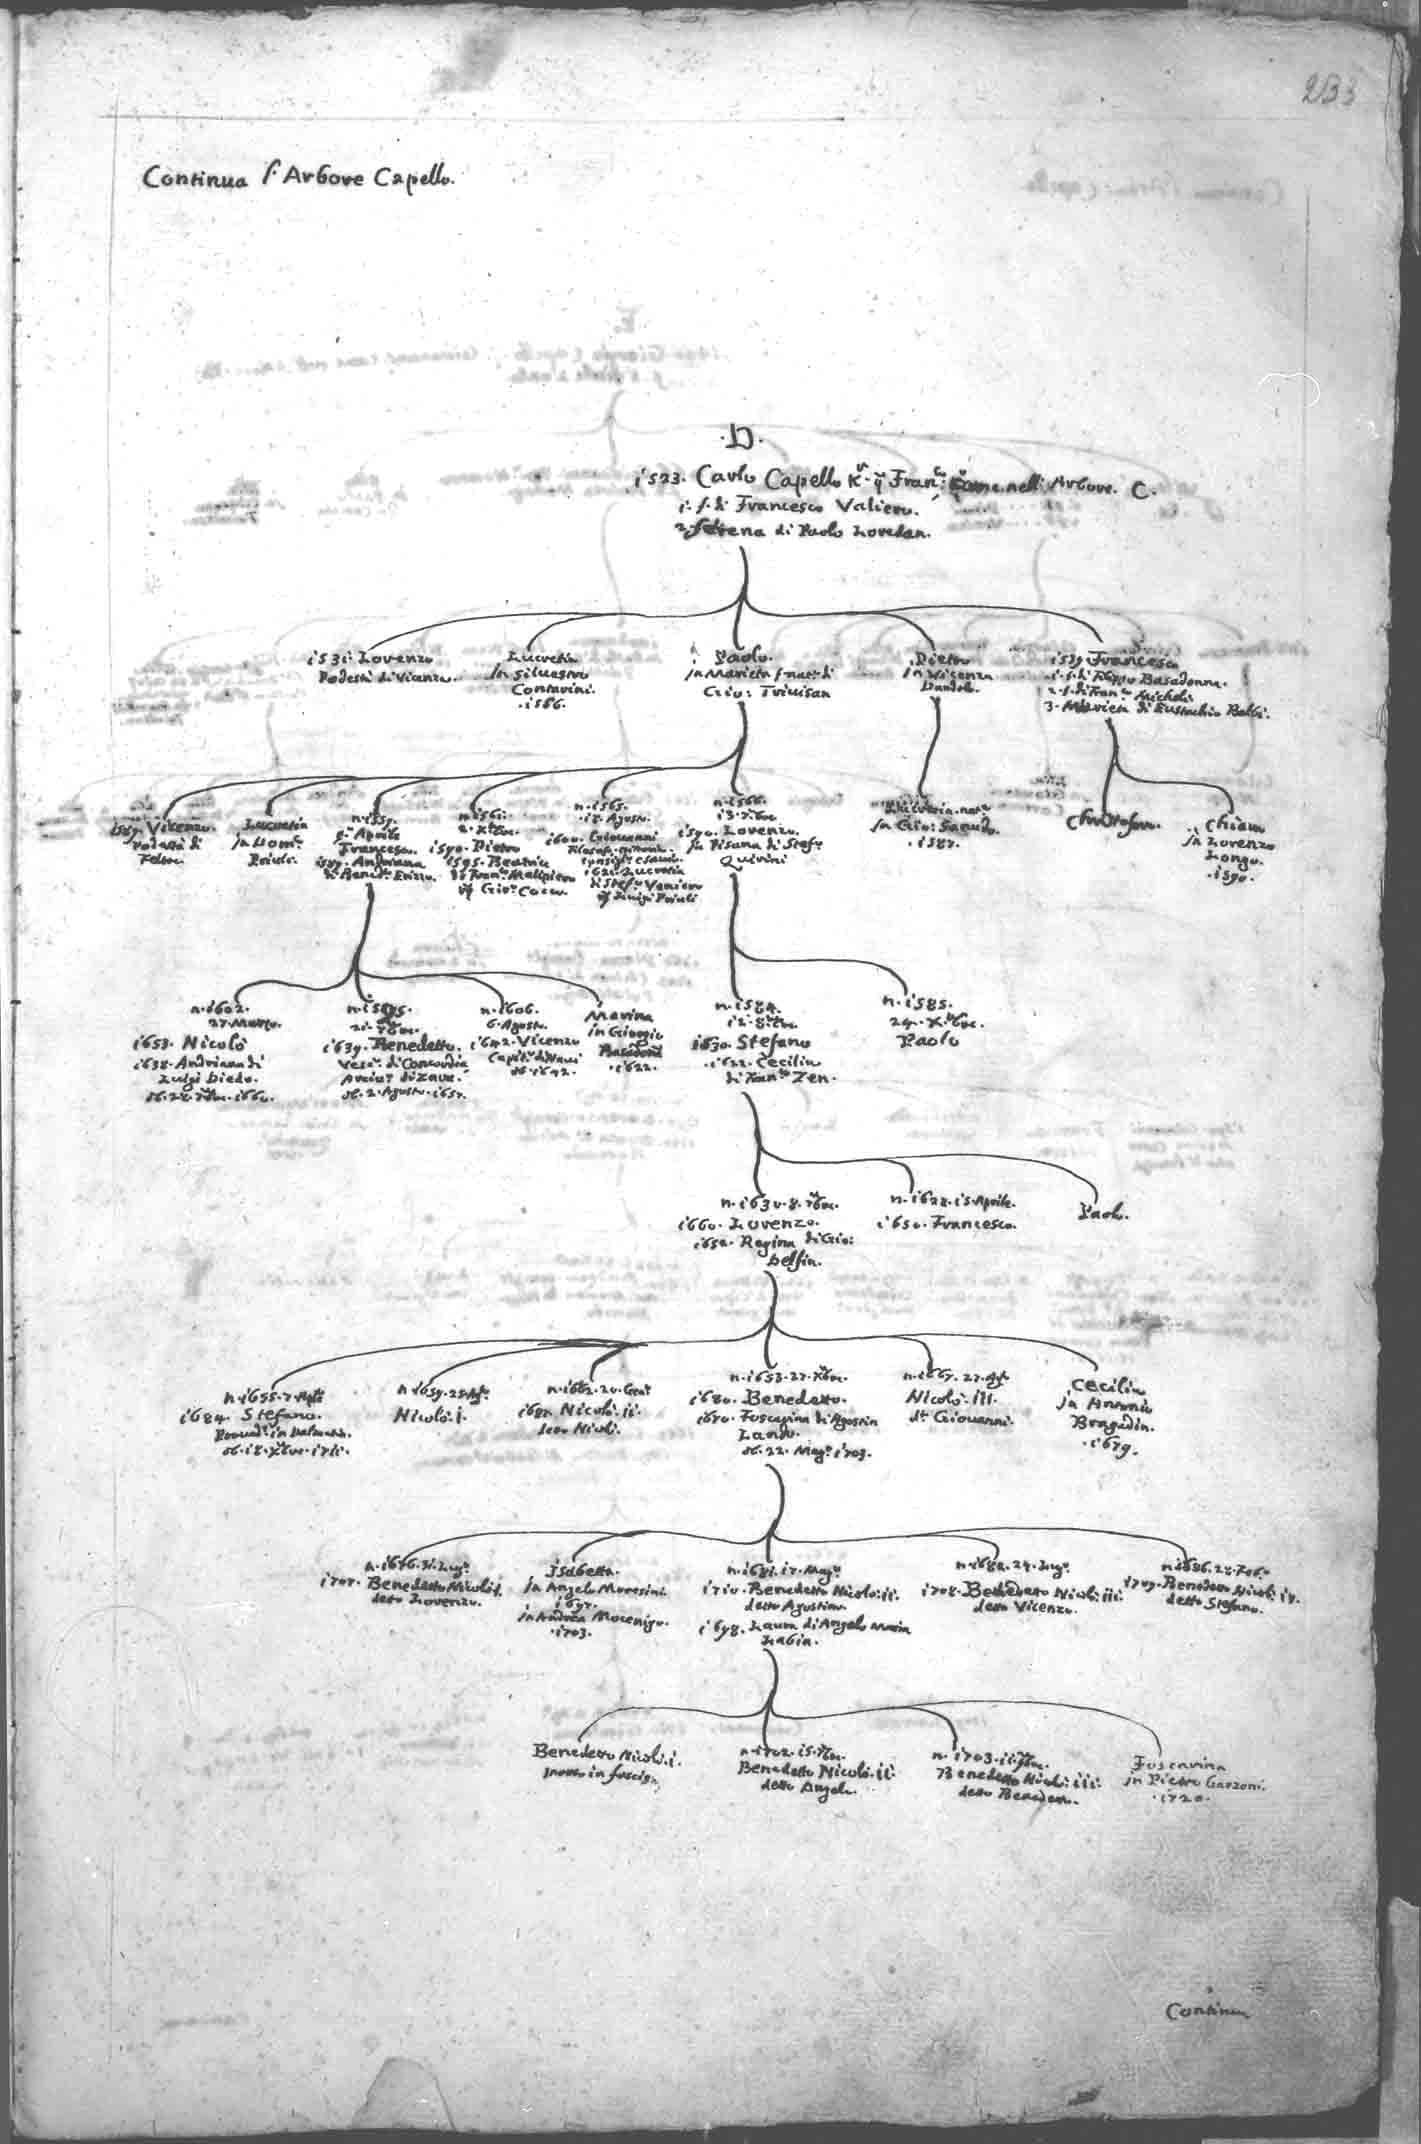 233
Continua l'Arbore Capello.
.D.
1523. Carlo Capello K.r q. Fran.co come nell' Arbore. C.
1. f. di Francesco Valiero.
di Paolo Loredan.
1531. Lorenzo
Podestà di Vicenza.
Lucretia
in Silvestro
Contarini.
.1586.
Paolo.
in Marieta f. nat. di
Gio: Trivisan
Pietro
in Vicenza
Dandolo.
1539. Francesco
1. f. di Filippo Basadonna.
2. f. di Fran.co Michiel.
3. Marieta di Eustachio Balbi.
1589. Vicenzo.
Podestà di
Feltre.
Lucretia
in Dom.co
Priuli.
n. 1559.
9. Aprile
Francesco.
1589. Andriana
di Bened.o Erizzo.
n. 1561.
2. Xbre.
1590. Pietro
1595. Beatrice
di Fran.co Malipiero
q. Gio: Cocco.
n. 1565.
12. Agosto.
1600. Giovanni
1621. Lucretia
di Stef.o Veniero
q. Luigi Priuli
n. 1566.
13. 7bre.
1590. Lorenzo.
in Pisana di Stef.o
Quirini
in Gio: Sanudo.
.1587.
Christoforo.
Chiara
in Lorenzo
Longo.
.1590.
n. 1602.
27. Marzo.
1653. Nicolò
1638. Andriana di
Luigi Diedo.
ob. 22. 7bre. 1660.
21. 7bre.
1639. Benedetto.
Vesc.o di Concordia
ob. 2. Agosto. 1657.
n. 1606.
6. Agosto.
1642. Vicenzo
Capit.o di Navi
ob. 1642.
Marina
in Giorgio
Basadona
.1622.
n. 1584.
12. 8bre.
1630. Stefano
.1622. Cecilia
di Fran.co Zen.
n. 1585.
24. Xbre.
Paolo
n. 1630. 8. 7bre.
1660. Lorenzo.
1652. Regina di Gio:
Delfin.
n. 1628. 15. Aprile.
1650. Francesco.
Paolo.
n. 1655. 7. Ag.to
1684. Stefano.
Proved.r in Dalmatia.
ob. 18. Xbre. 1711.
n. 1659. 25. Ag.to
Nicolò. i.
n. 1662. 20. Gen.o
1687. Nicolò. ii.
detto Nicolò.
n. 1653. 27. Xbre.
1680. Benedetto.
1670. Foscarina di Agostin
Lando.
ob. 22. Mag.o 1703.
n. 1667. 27. Ag.to
Nicolò. iii.
d.to Giovanni.
Cecilia
in Antonio
Bragadin.
.1679.
n. 1676. 31. Lug.o
1707. Benedetto Nicolò. i.
detto Lorenzo.
Isabetta.
in Angelo Moresini
1697.
in Andrea Mocenigo.
.1703.
n. 1681. 17. Mag.o
1710. Benedetto Nicolò. ii.
detto Agostino
1698. Laura di Angelo Maria
Labia.
n. 1682. 24. Lug.o
1708. Benedetto Nicolò. iii.
detto Vicenzo.
n. 1686. 22. Feb.o
1707. Benedetto Nicolò. iv.
detto Stefano.
Benedetto Nicolò. i.
morto in fascie.
n. 1702. 15. 7bre.
Benedetto Nicolò. ii.
detto Angelo.
n. 1703. 11. 7bre.
Benedetto Nicolò. iii.
detto Benedetto.
Foscarina
in Pietro Garzoni.
.1720.
Continua